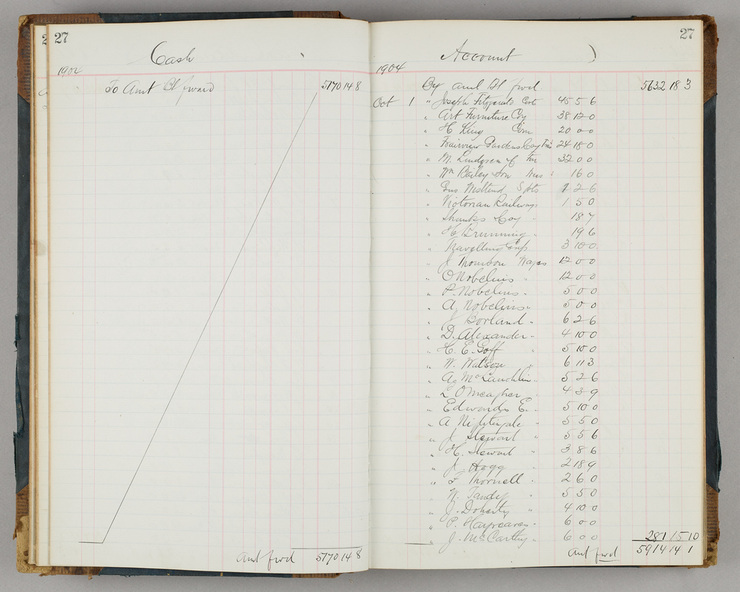 2 27
Cash
1904
To Amt Bt forward 5170 14 8
Amt fwd 5170 14 8
27
Account )
1904
By amt Bt fwd 5632 18 3
Oct 1 " Joseph Fitzgerald 45 5 6
" Art Furniture Coy 38 12 0
" H King 20 0 0
" Fairview 24 18 0
" M. Lindgren 32 0 0
" Wm Bailey Son 16 0
" 2 6
" Victorian Railways 1 5 0
" Shanks & Coy " 18 7
" H Brunning " 19 6
" Travelling Exps 3 10 0
" J Mounton Wages 12 0 0
" O Nobelius " 12 0 0
" P. Nobelius " 5 0 0
" A. Nobelius " 5 0 0
" J Borland " 6 2 6
" D. Alexander " 4 10 0
" H. E. Goff " 5 10 0
" W. Watson " 6 11 3
" A. McLauchlin " 5 2 6
" L OMeagher " 4 8 9
" Edwards E. " 5 10 0
" A Nightingale " 5 5 0
" J Stewart " 5 5 6
" H. Steward " 3 8 6
" J. Hogg " 2 18 9
" F Thornell " 2 6 0
" W. Tandy " 5 5 0
" J. Doherty " 4 10 0
" P. Hargreaves " 6 0 0
" J. McCarthy " 6 0 0 281 15 10
Amt fwd 5914 14 1